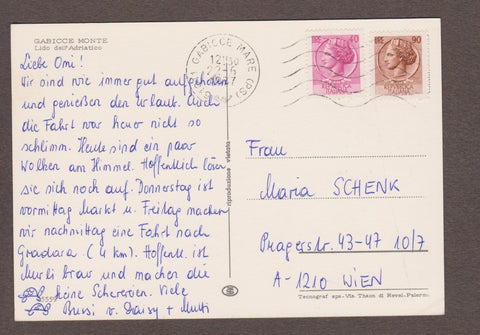 GABICCE MONTE
Lido dell'Adriatico
Liebe Omi!
Wir sind wie immer gut aufgehoben
und genießen den Urlaub. Auch
die Fahrt war heuer nicht so
schlimm. Heute sind ein paar
Wolken am Himmel. Hoffentlich lösen
sie sich noch auf. Donnerstag ist
vormittag Markt u. Freitag machen
wir nachmittag eine Fahrt nach
Gradara (4 km). Hoffentl. ist
Murli brav und machen die
keine Scherereien. Viele
Bussi v. Daisy + Mutti
GABICCE MARE (PS)
riproduzione vietata
LIRE 40
REPUBBLICA ITALIANA
LIRE 90
REPUBBLICA ITALIANA
Frau
Maria SCHENK
Pragerstr. 43-47 10/7
A-1210 WIEN
Tecnograf spa-Via Thaon di Revel-Palermo